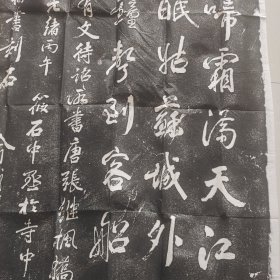 啼霜滿天江
眠姑蘇城外
聲到客船
有文待詔所書唐張繼楓橋
光緒丙午 筱石中丞於寺中
書刻石